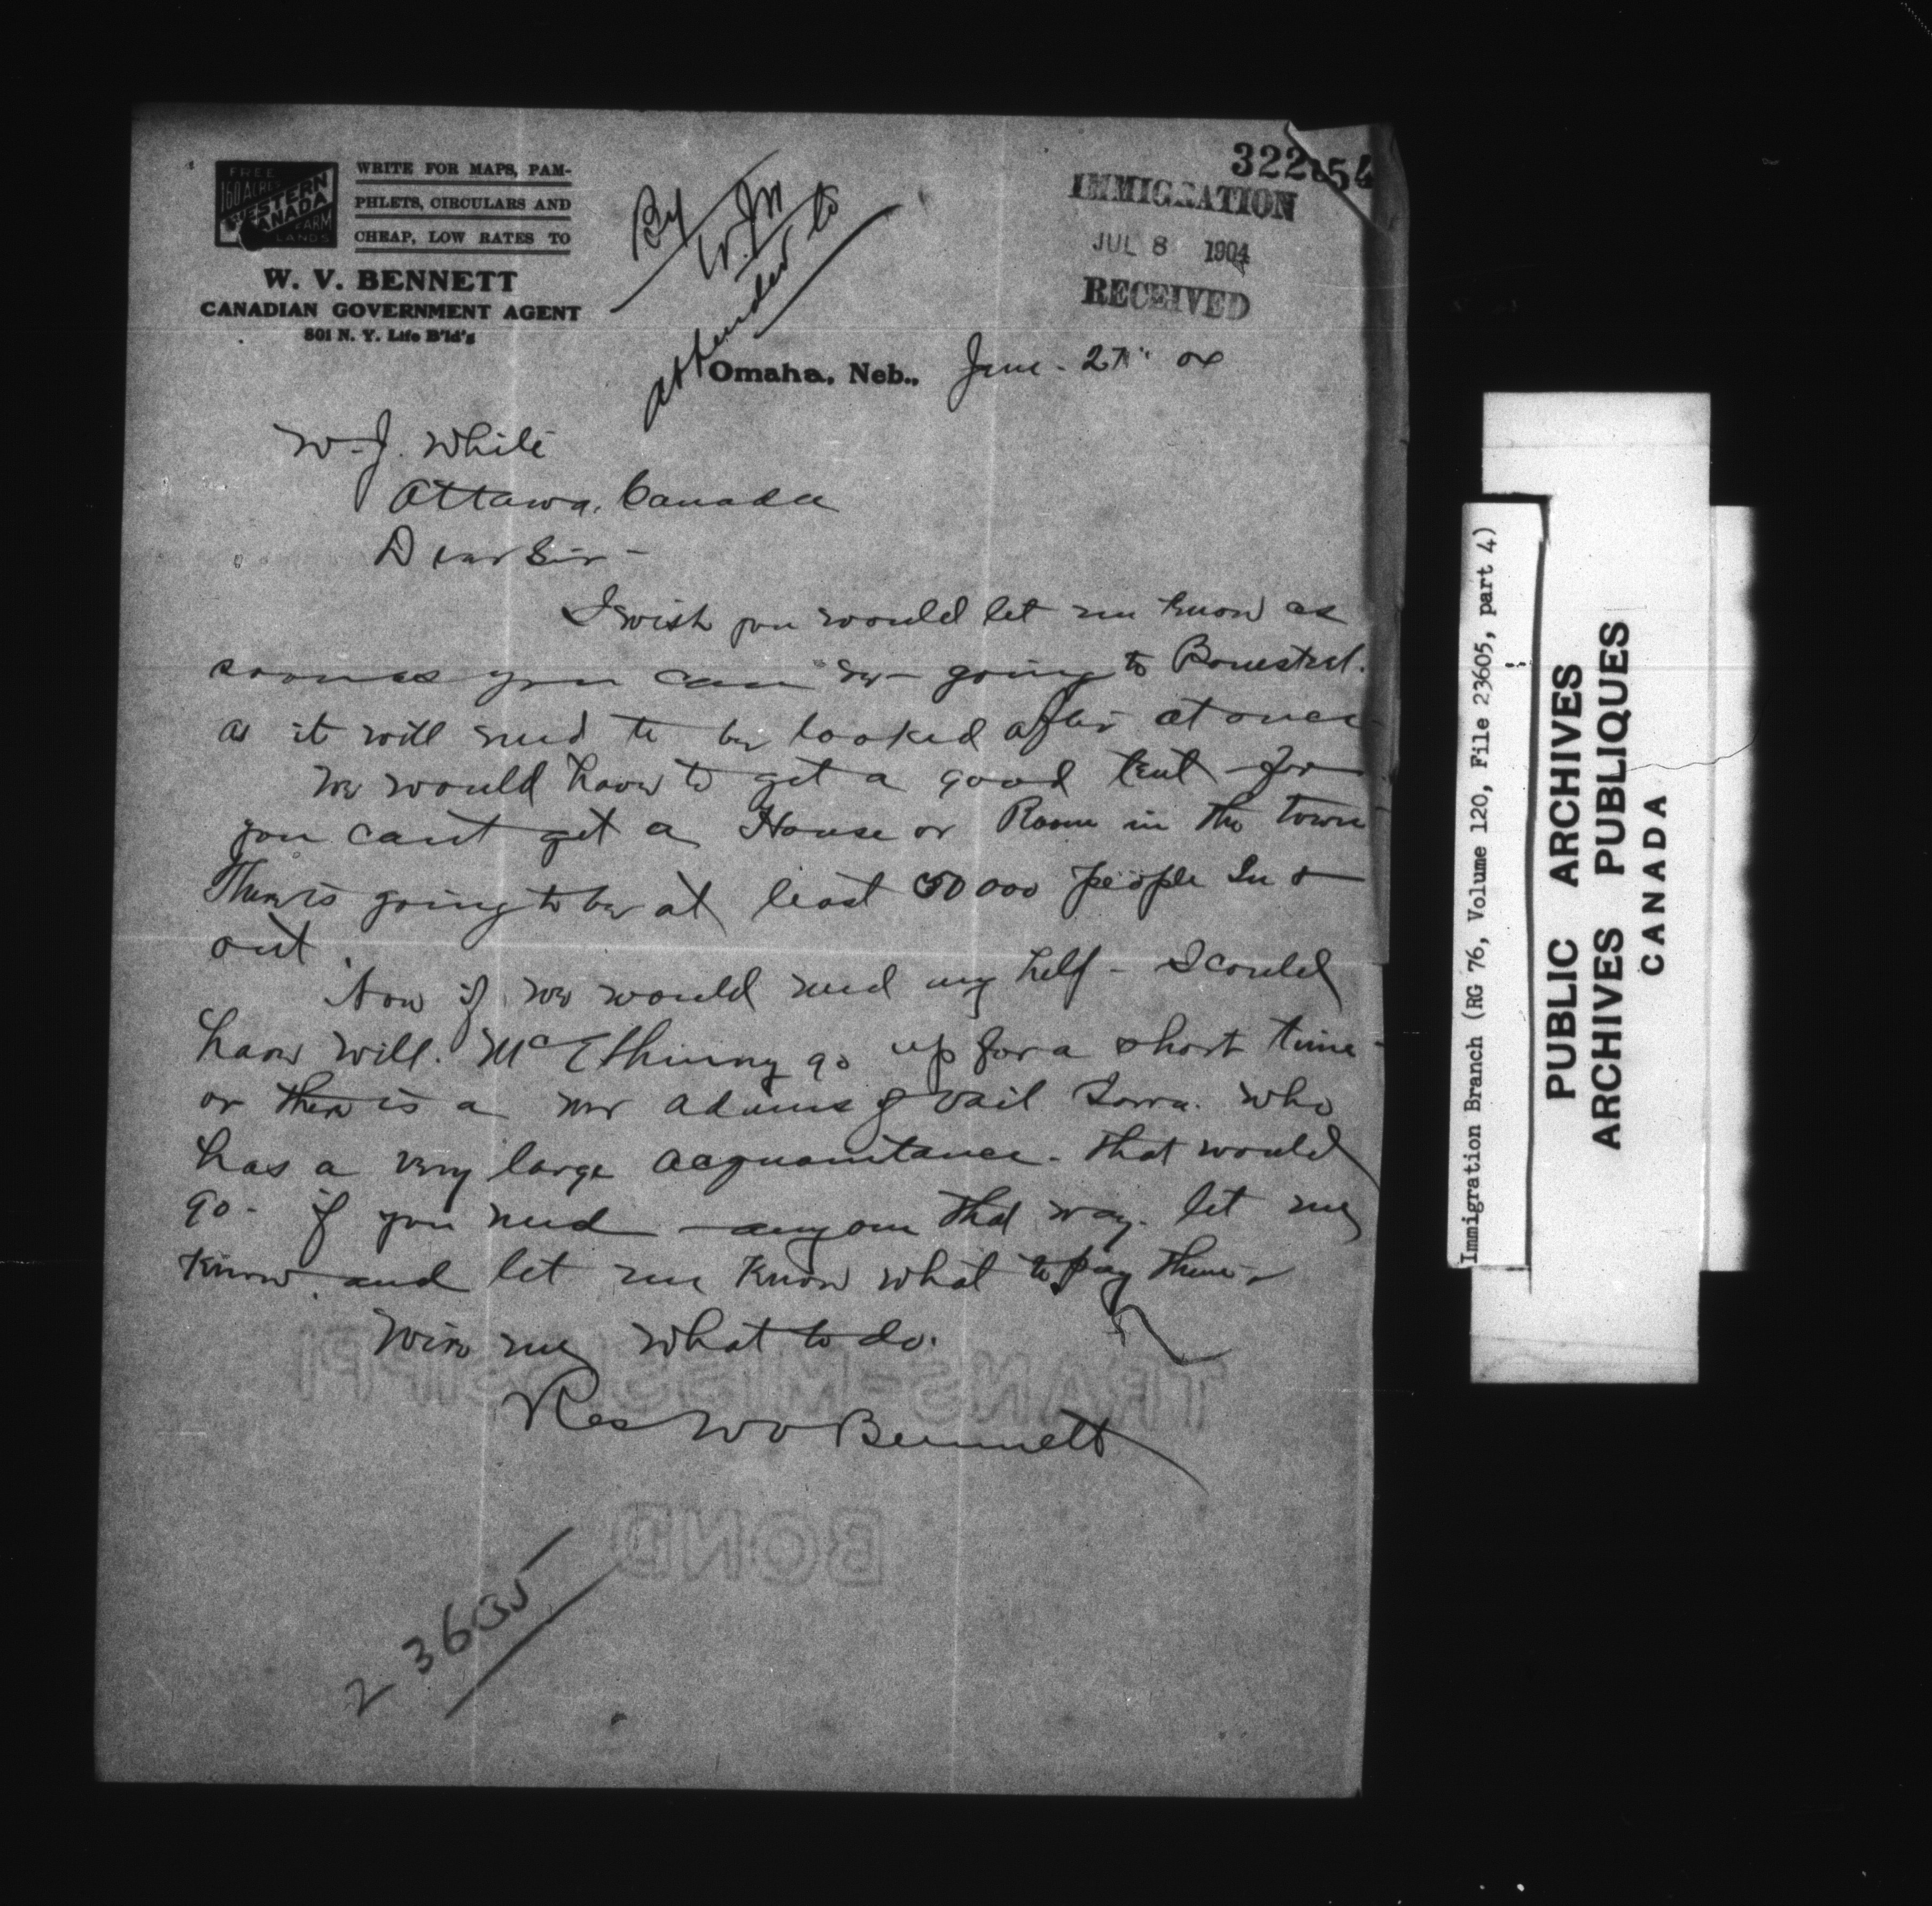 322854
IMMIGRATION
JUL 8 1904
RECEIVED
FREE
160 ACRE
WESTERN
CANADA
FARM
LANDS
WRITE FOR MAPS, PAM-
PHLETS, CIRCULARS AND
CHEAP, LOW RATES TO
W. V. BENNETT
CANADIAN GOVERNMENT AGENT
801 N. Y. Life B'ld'g
By
attended to
Omaha, Neb., June - 27" 04
W. J. White
Ottawa, Canada
Dear Sir -
I wish you would let me know as
soon as you can going to Bonesteel.
as it will need to be looked after at once
We would have to get a good tent for
you cant get a House or Room in the town
There is going to be at least 50 000 people In &
out.
Now if we would need my help - I could
have Will. McElhinny go up for a short time -
or there is a Mr Adams of Vail Iowa. who
has a very large acquaintance - that would
go - if you need anyone that way. let me
Know and let me Know what to pay them
Wire me what to do.
Res W V Bennett
TRANS-MISSISSIPPI
BOND
23605
Immigration Branch (RG 76, Volume 120, File 23605, part 4)
PUBLIC ARCHIVES
ARCHIVES PUBLIQUES
CANADA